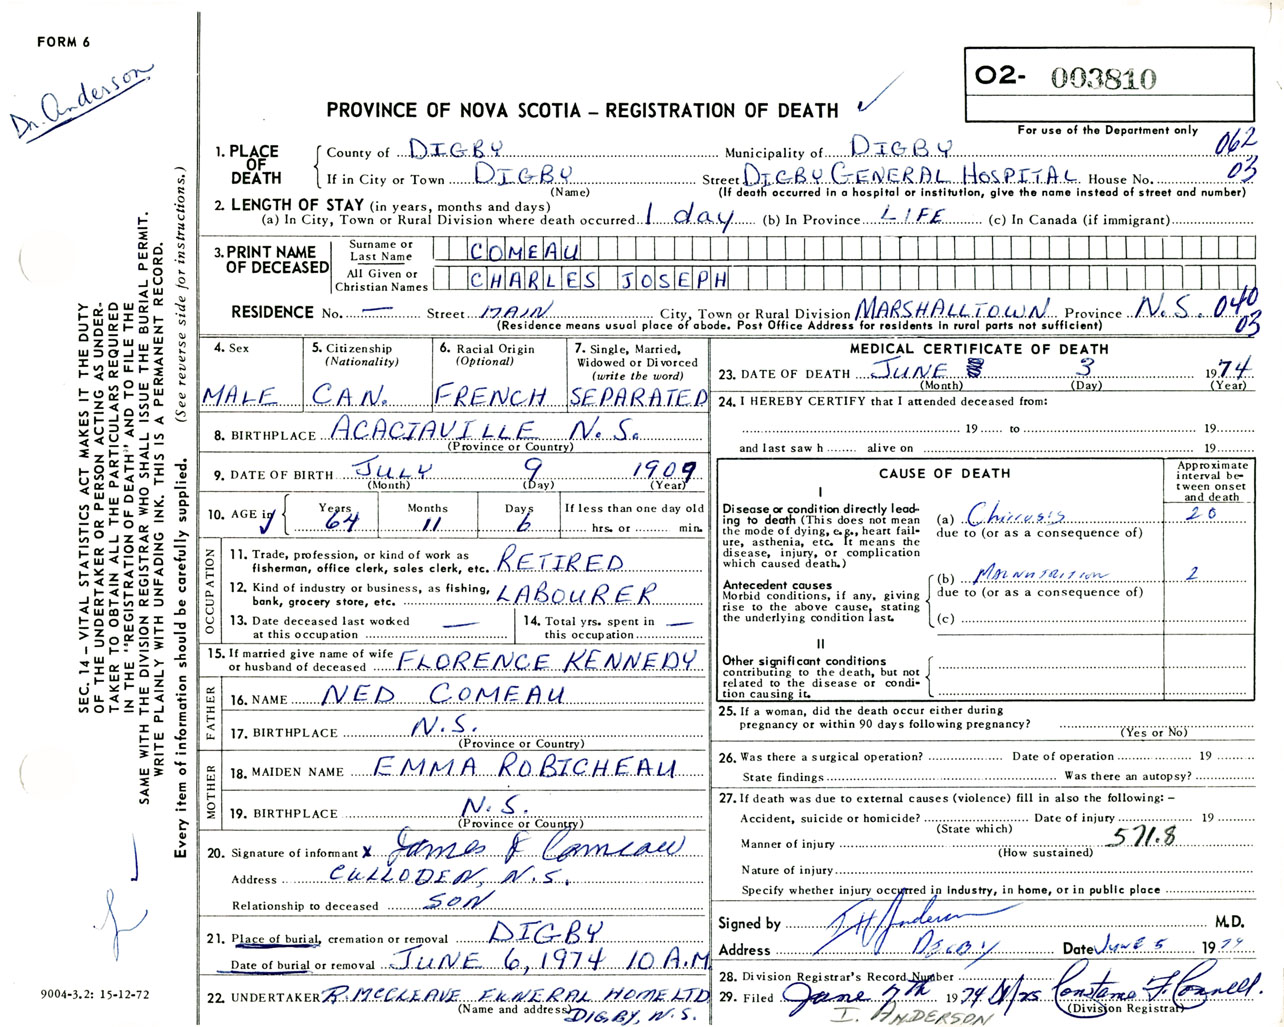 FORM 6
Dr. Anderson
O2- 003810
PROVINCE OF NOVA SCOTIA – REGISTRATION OF DEATH
For use of the Department only
062
03
1. PLACE OF DEATH
County of DIGBY Municipality of DIGBY
If in City or Town DIGBY Street DIGBY GENERAL HOSPITAL House No.
(Name) (If death occurred in a hospital or institution, give the name instead of street and number)
2. LENGTH OF STAY (in years, months and days)
(a) In City, Town or Rural Division where death occurred 1 day (b) In Province LIFE (c) In Canada (if immigrant)
3. PRINT NAME OF DECEASED
Surname or Last Name COMEAU
All Given or Christian Names CHARLES JOSEPH
RESIDENCE No. — Street MAIN City, Town or Rural Division MARSHALLTOWN Province N.S. 040
03
(Residence means usual place of abode. Post Office Address for residents in rural parts not sufficient)
4. Sex
MALE
5. Citizenship
(Nationality)
CAN.
6. Racial Origin
(Optional)
FRENCH
7. Single, Married,
Widowed or Divorced
(write the word)
SEPARATED
8. BIRTHPLACE ACACIAVILLE N.S.
(Province or Country)
9. DATE OF BIRTH JULY 9 1909
(Month) (Day) (Year)
10. AGE in
Years Months Days If less than one day old
64 11 6 hrs. or min.
OCCUPATION
11. Trade, profession, or kind of work as
fisherman, office clerk, sales clerk, etc. RETIRED
12. Kind of industry or business, as fishing,
bank, grocery store, etc. LABOURER
13. Date deceased last worked
at this occupation —
14. Total yrs. spent in
this occupation —
15. If married give name of wife
or husband of deceased FLORENCE KENNEDY
FATHER
16. NAME NED COMEAU
17. BIRTHPLACE N.S.
(Province or Country)
MOTHER
18. MAIDEN NAME EMMA ROBICHEAU
19. BIRTHPLACE N.S.
(Province or Country)
20. Signature of informant x James F Comeau
Address CULLODEN, N.S.
Relationship to deceased SON
21. Place of burial, cremation or removal DIGBY
Date of burial or removal JUNE 6, 1974 10 A.M.
22. UNDERTAKER R. MCCLEAVE FUNERAL HOME LTD
(Name and address) DIGBY, N.S.
MEDICAL CERTIFICATE OF DEATH
23. DATE OF DEATH JUNE 3 1974
(Month) (Day) (Year)
24. I HEREBY CERTIFY that I attended deceased from:
19 to 19
and last saw h alive on 19
CAUSE OF DEATH
Approximate
interval be-
tween onset
and death
I
Disease or condition directly lead-
ing to death (This does not mean
the mode of dying, e.g., heart fail-
ure, asthenia, etc. It means the
disease, injury, or complication
which caused death.)
(a) Chirrosis 20
due to (or as a consequence of)
Antecedent causes
Morbid conditions, if any, giving
rise to the above cause, stating
the underlying condition last.
(b) MALNUTRITION 2
due to (or as a consequence of)
(c)
II
Other significant conditions
contributing to the death, but not
related to the disease or condi-
tion causing it.
25. If a woman, did the death occur either during
pregnancy or within 90 days following pregnancy?
(Yes or No)
26. Was there a surgical operation? Date of operation 19
State findings Was there an autopsy?
27. If death was due to external causes (violence) fill in also the following: –
Accident, suicide or homicide? Date of injury 19
(State which)
Manner of injury 571.8
(How sustained)
Nature of injury
Specify whether injury occurred in Industry, in home, or in public place
Signed by Anderson M.D.
Address DIGBY Date JUNE 5 1974
28. Division Registrar's Record Number
29. Filed June 7th 1974 Mrs Constance F. Connell.
(Division Registrar)
I. ANDERSON
SEC. 14 – VITAL STATISTICS ACT MAKES IT THE DUTY
OF THE UNDERTAKER OR PERSON ACTING AS UNDER-
TAKER TO OBTAIN ALL THE PARTICULARS REQUIRED
IN THE "REGISTRATION OF DEATH" AND TO FILE THE
SAME WITH THE DIVISION REGISTRAR WHO SHALL ISSUE THE BURIAL PERMIT.
WRITE PLAINLY WITH UNFADING INK. THIS IS A PERMANENT RECORD.
Every item of information should be carefully supplied. (See reverse side for instructions.)
9004-3.2: 15-12-72